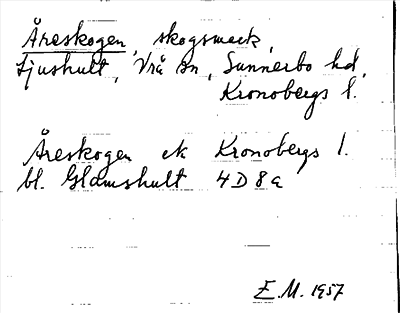 Åreskogen, skogsmark,
Ljushult, Vrå sn, Sunnerbo hd,
Kronobergs l.
Åreskogen ek Kronobergs l.
bl. Glamshult 4D8a
E.M. 1957